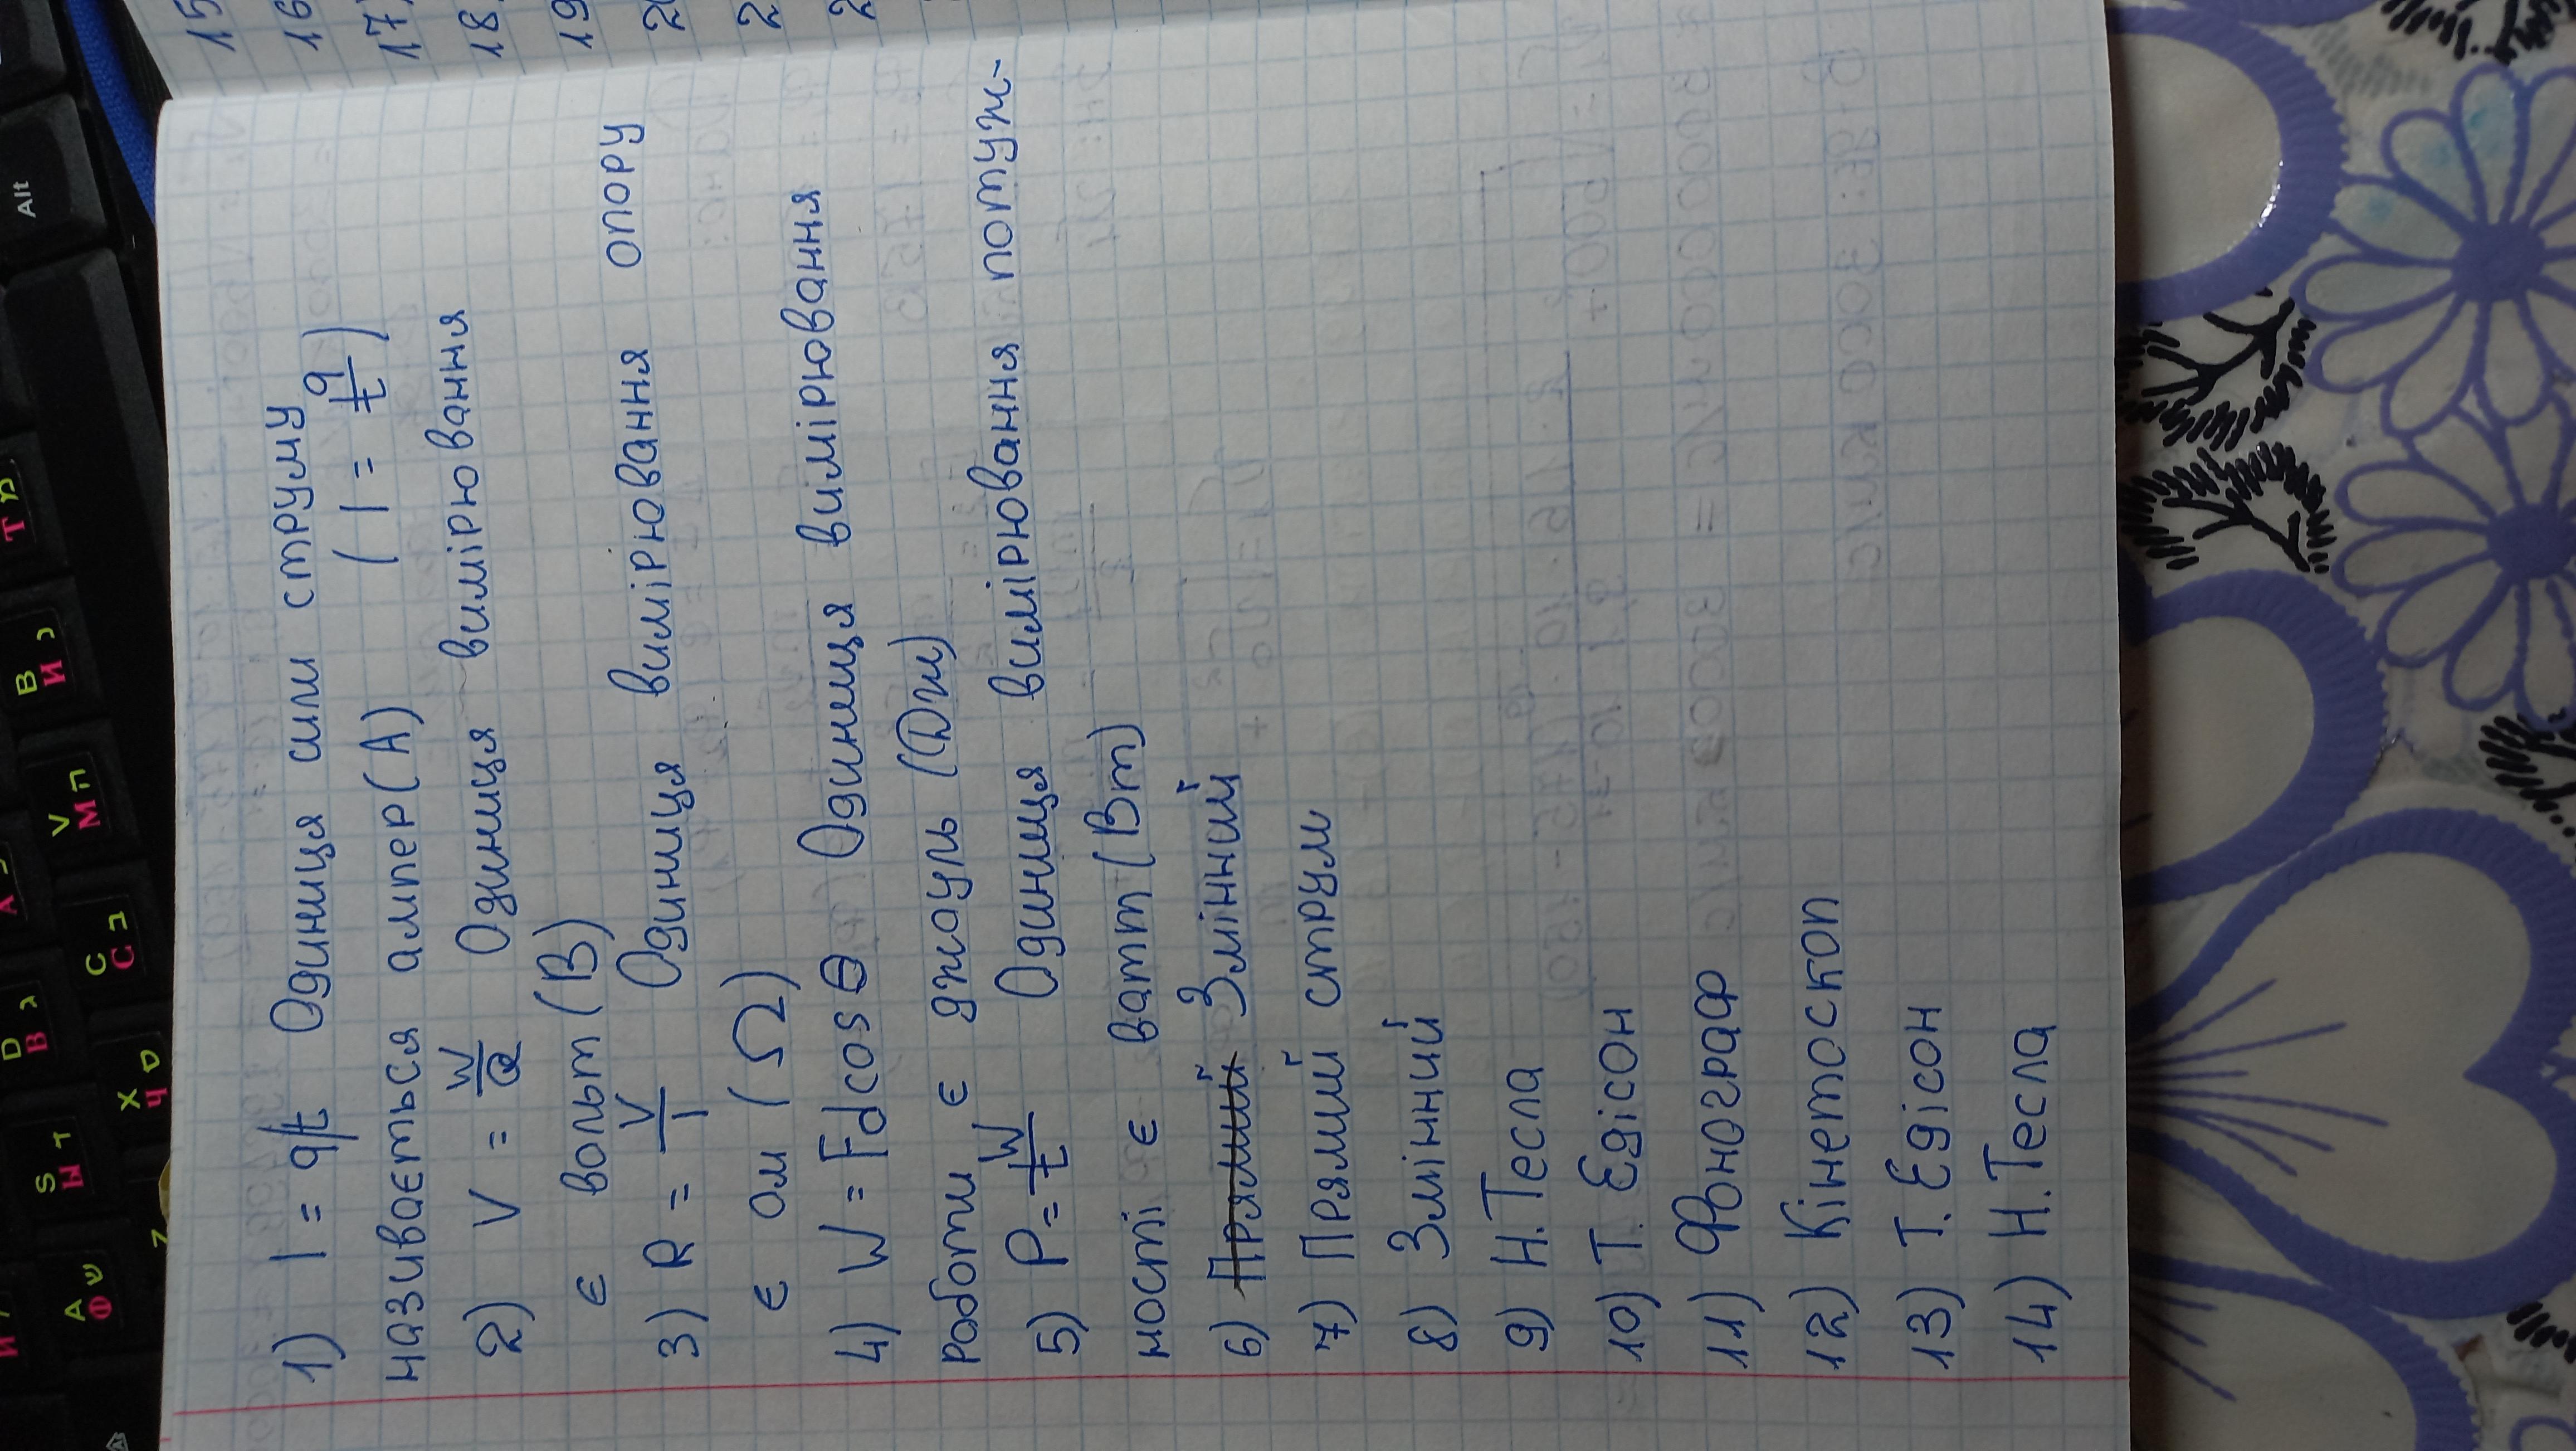 1) I = q/t Одиниця сили струму
називається ампер(А) ( I = q/t )
2) V = W/Q Одиниця вимірювання
є вольт (В)
3) R = V/I Одиниця вимірювання опору
є ом (Ω)
4) W = Fd cos θ Одиниця вимірювання
работи є джоуль (Дж)
5) P = W/t Одиниця вимірювання потуж-
ності є ватт (Вт)
6) Прямий Змінний
7) Прямий струм
8) Змінний
9) Н. Тесла
10) Т. Едісон
11) Фонограф
12) Кінетоскоп
13) Т. Едісон
14) Н. Тесла
15
16
17
18
19
Alt
B И
V М
C С
D В
X Ч
S Ы
A Ф
Z